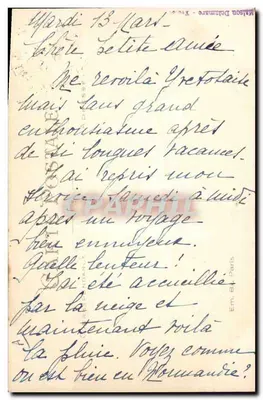 Mardi 13 Mars.
Chère petite amie
Me revoilà Yvetotaise
mais sans grand
enthousiasme après
de si longues vacances.
J'ai repris mon
service samedi à midi
après un voyage
bien ennuyeux.
Quelle lenteur!
J'ai été accueillie
par la neige et
maintenant voilà
la pluie. Voyez comme
on est bien en Normandie?